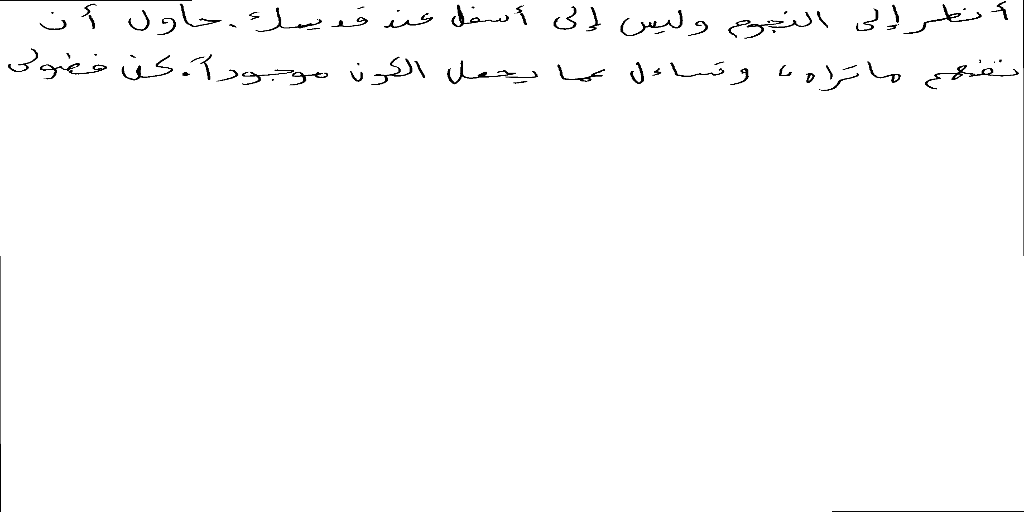 أنظر إلى النجوم وليس إلى أسفل عند قدميك. حاول أن
تفهم ماتراه، وتساءل عما يجعل الكون موجوداً. كن فضولى